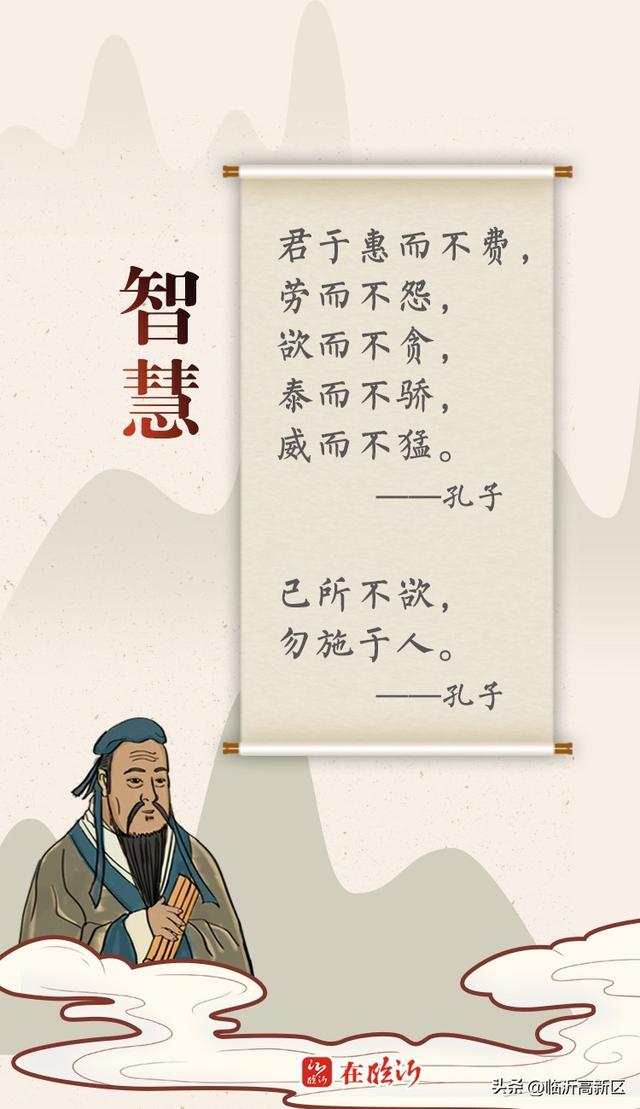 智慧
君于惠而不费，
劳而不怨，
欲而不贪，
泰而不骄，
威而不猛。
——孔子
己所不欲，
勿施于人。
——孔子
在临沂
头条 @临沂高新区